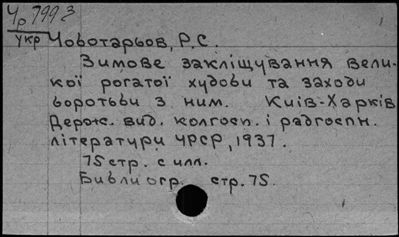 Чр 7993
укр
Чоботарьов, Р.С.
Зимове закліщування вели-
кої рогатої худоби та заходи
боротьби з ним. Київ-Харків
Держ. вид. колгосп. і радгоспн.
літератури УРСР, 1937.
75 стр. с илл.
Библиогр. стр. 75.